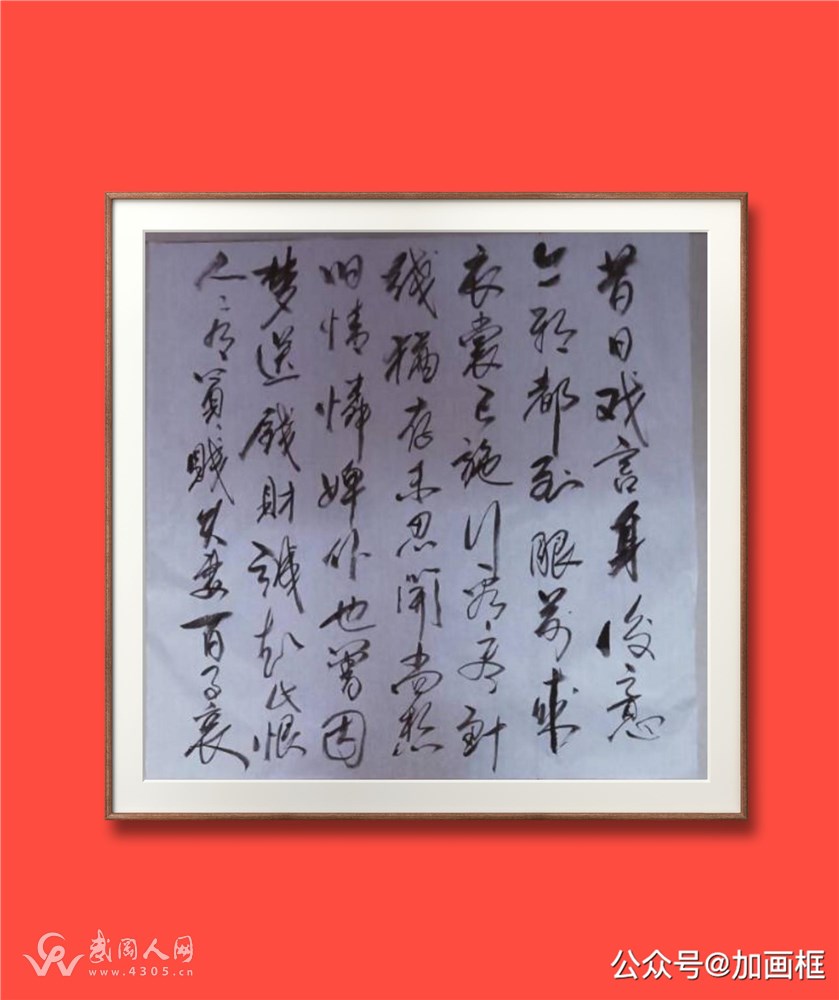 昔日戏言身後意
今朝都到眼前来
衣裳已施行看尽針
线猶存未忍開尚想
旧情憐婢仆也曾因
梦送錢財誠知此恨
人々有貧賤夫妻百事哀
武冈人网
www.4305.cn
公众号@加画框